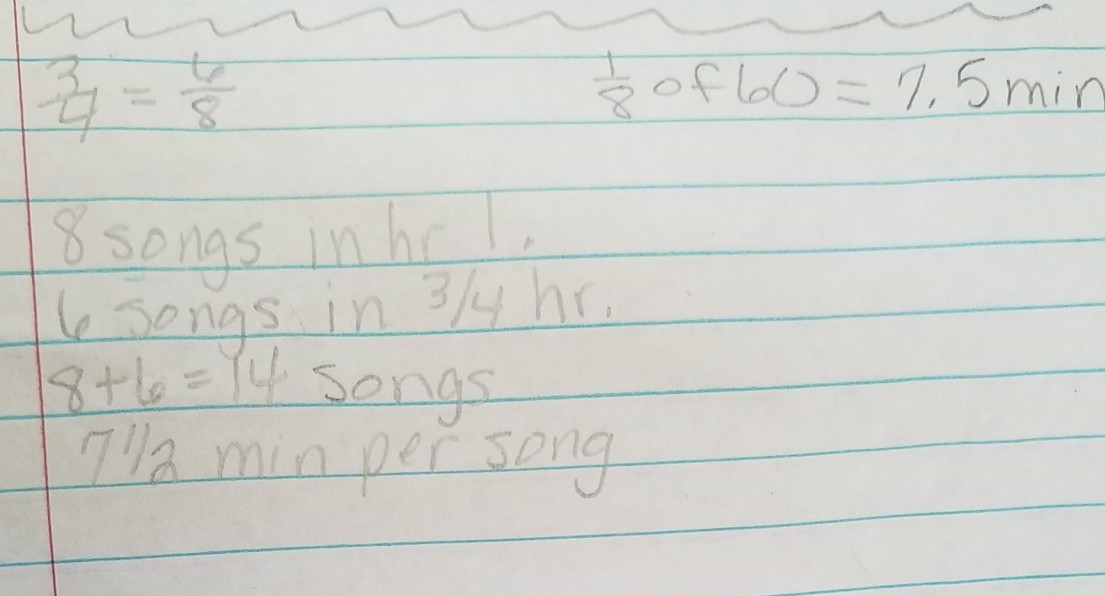 3/4 = 6/8
1/8 of 60 = 7.5 min
8 songs in hr 1.
6 songs in 3/4 hr.
8+6=14 songs
7 1/2 min per song